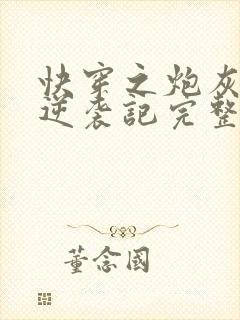 快穿之炮灰
逆袭記完整
董念國